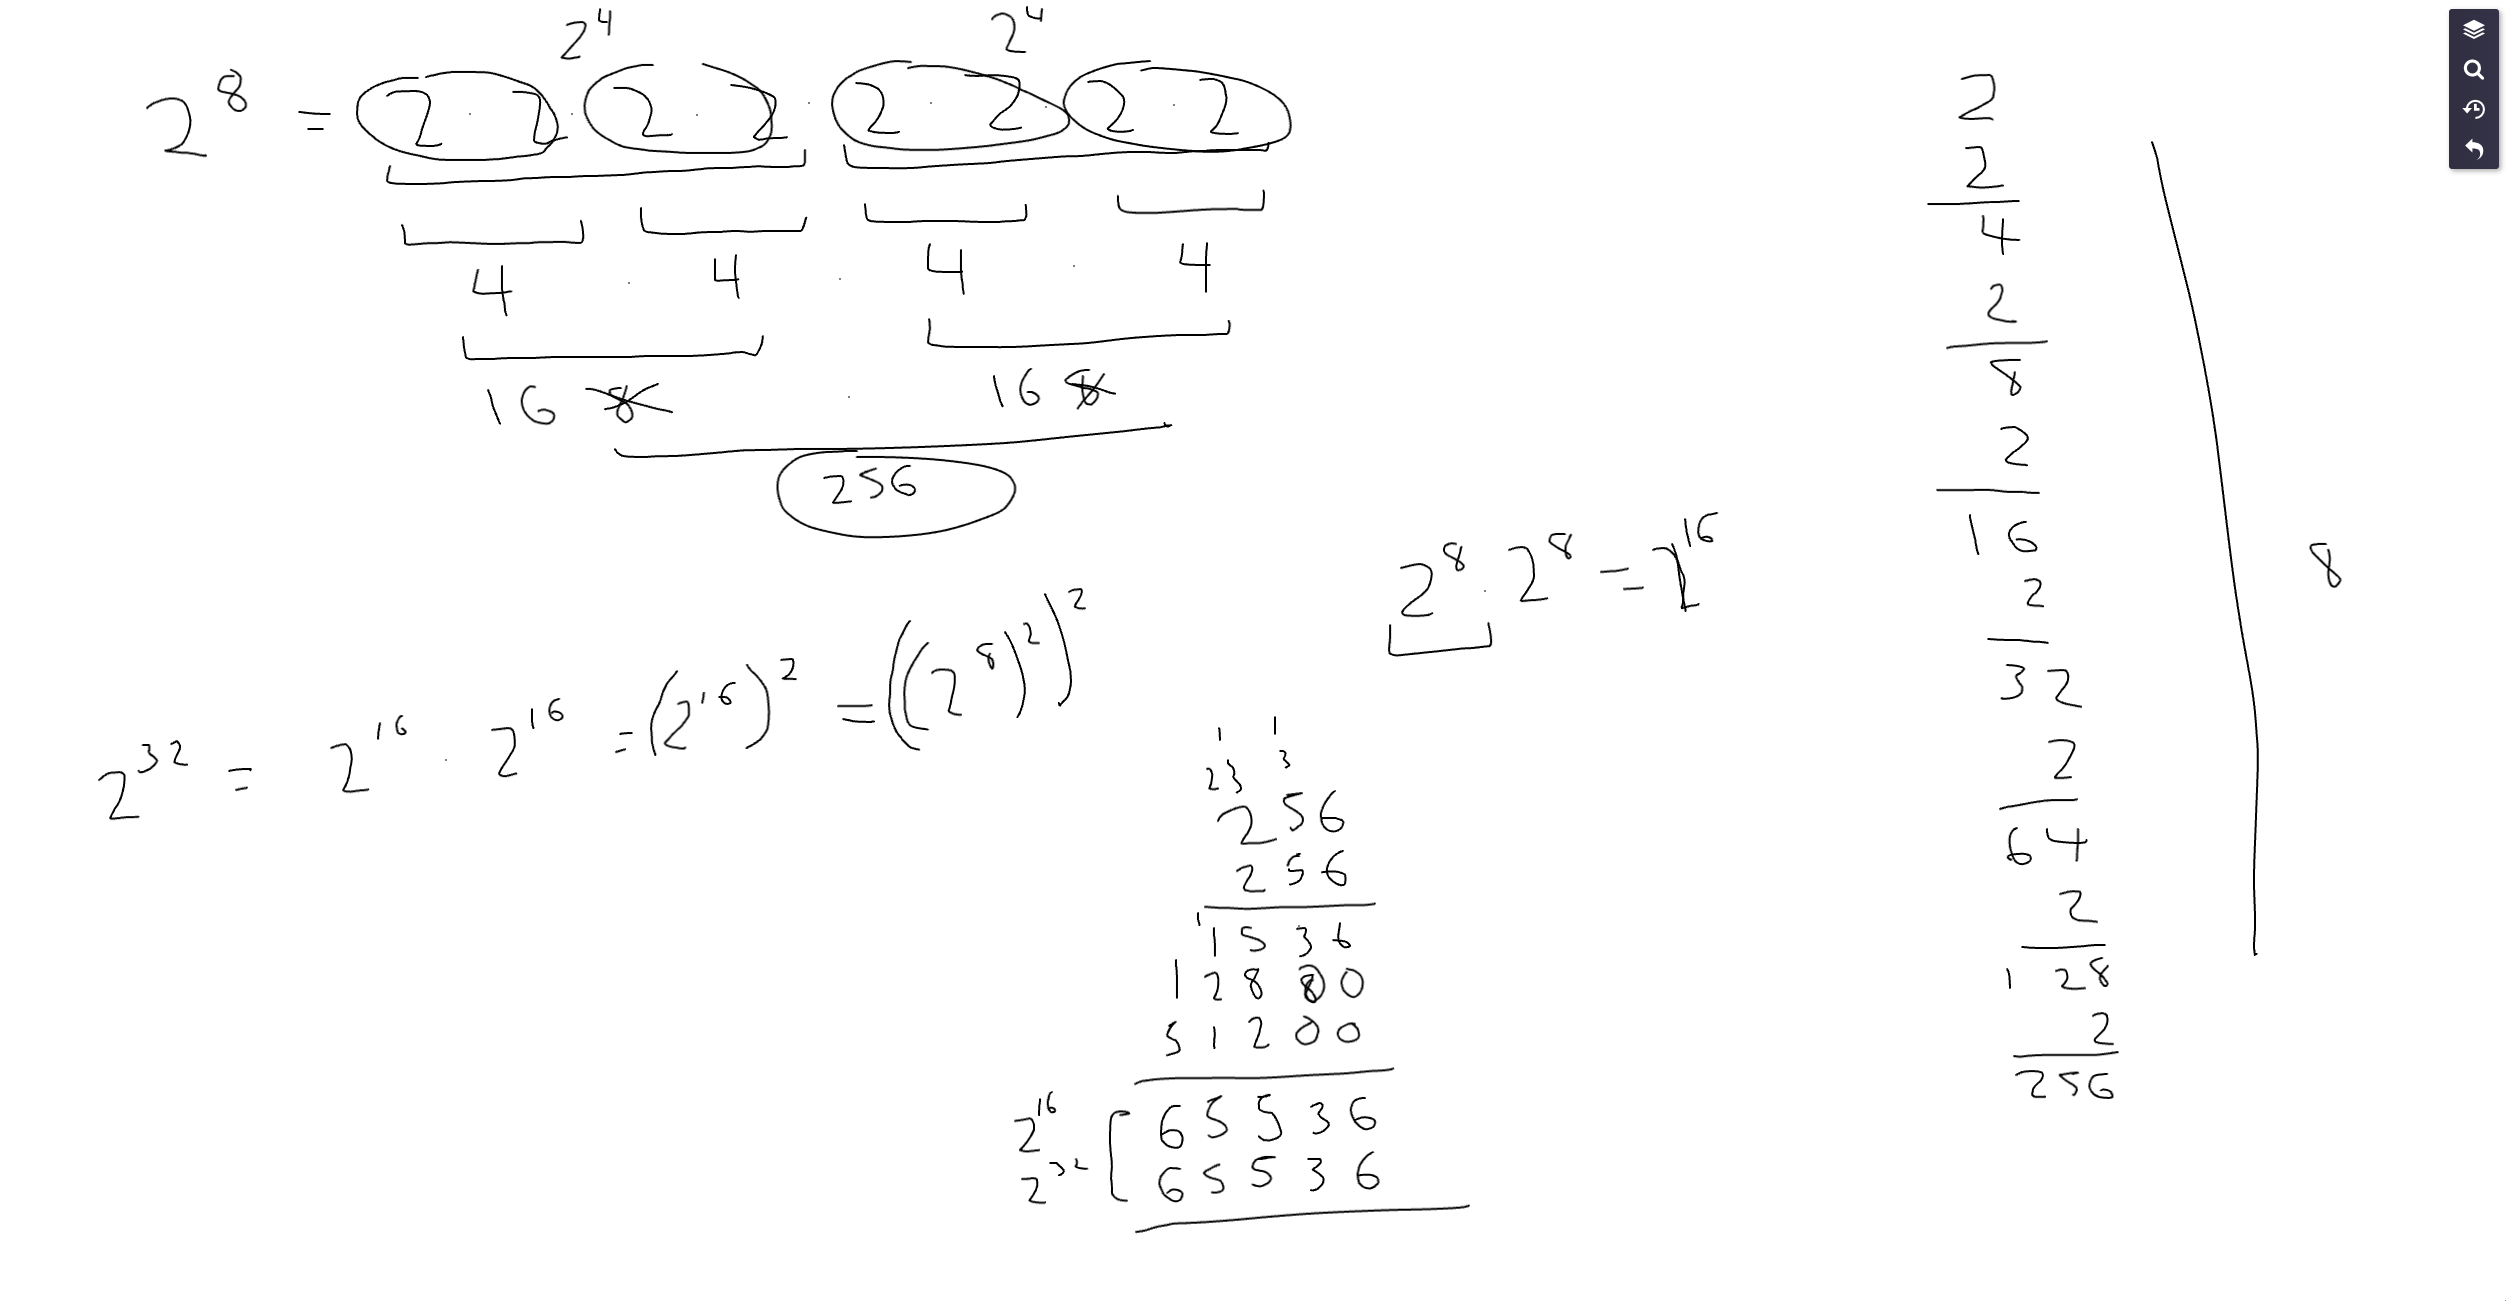 2^4 2^4
2^8 = 2 · 2 · 2 · 2 · 2 · 2 · 2 · 2
4 · 4 · 4 · 4
16 8 · 16 8
256
2^8 · 2^8 = 2^16
2^32 = 2^16 · 2^16 = (2^16)^2 = ((2^8)^2)^2
1 1
2 3 3
256
256
1
1536
12800
51200
2^16 65536
2^32 65536
2
2
4
2
8
2
16
2
32
2
64
2
128
2
256
8